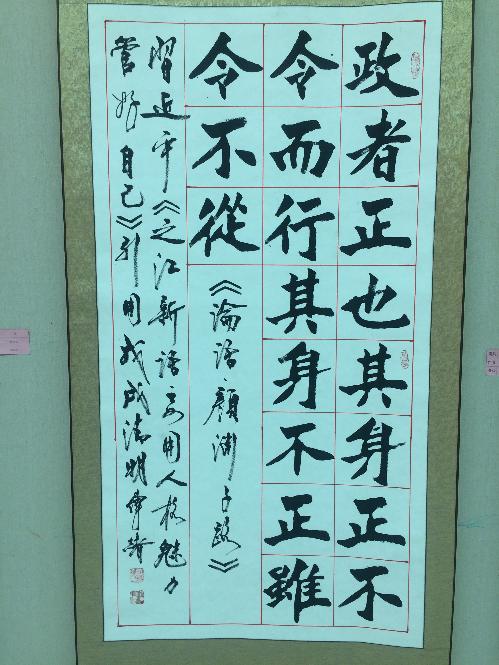 政者正也其身正不
令而行其身不正雖
令不從
《論語·顏淵子路》
習近平《之江新語·要用人格魅力
管好自己》引用 戊戌清明